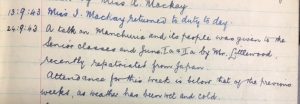 by Miss A. Mackay
13:9:43 Miss I. Mackay returned to duty to day.
24:9:43 A talk on Manchuria and its people was given to the
Senior classes and Juns. I a & II a by Mr. Littlewood,
recently repatriated from Japan.
Attendance for this week is below that of the previous
weeks, as weather has been wet and cold.